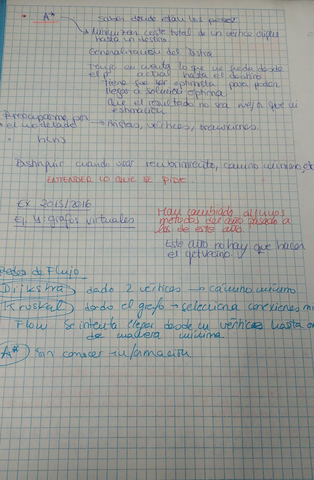 A* Saber donde estan los pesos
→ Minimizan coste total de un vértice
hasta un destino
Generalización del Dijstra
cuanto lo que me queda desde
el pto actual hasta el destino
Tiene que ser optimista para poder
llegar a solución optima
Que el resultado no sea mejor que mi
estimación
Preocuparme por
el modelado → Aristas, vértices, conexiones.
Distinguir cuando usar recubrimiento, camino mínimo, etc
ENTENDER LO QUE SE PIDE
Ex. 2015/2016
Ej. 4: grafos virtuales
Han cambiado algunos
metodos del año pasado a
los de este año.
Este año no hay que hacer
el getVecino.
Redes de Flujo
Dijkstra) dado 2 vértices → camino mínimo
Kruskal) dado el grafo → selecciona conexiones
Flow Se intenta llegar desde un vértice hasta
de manera mínima
A*) Sin conocer información